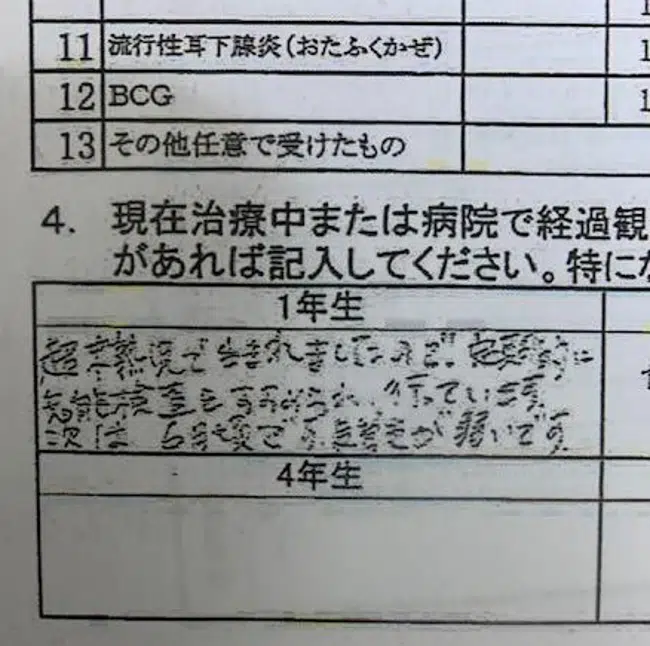 11 流行性耳下腺炎(おたふくかぜ)
12 BCG
13 その他任意で受けたもの
4. 現在治療中または病院で経過観
があれば記入してください。特にな
1年生
生まれましたので、定期的に
検査をすすめられ、行っています
次は 6月頃です が弱いです
4年生